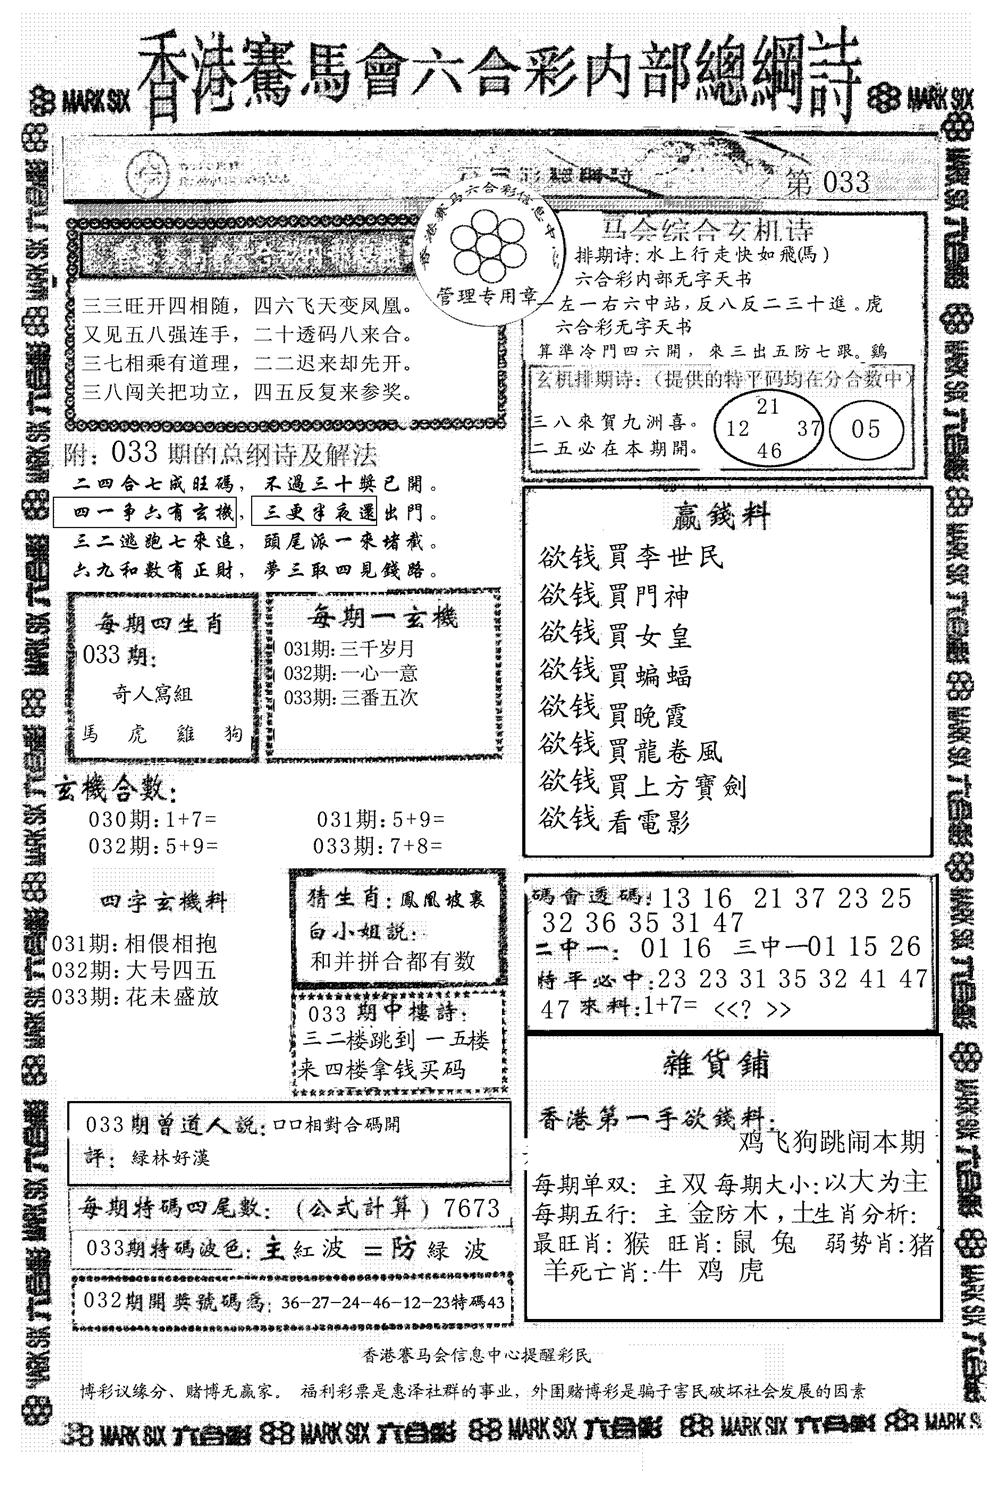 香港賽馬會六合彩内部總綱詩
MARK SIX
MARK SIX
第 033
香港赛马六合彩信息中心
管理专用章
三三旺开四相随，四六飞天变凤凰。
又见五八强连手，二十透码八来合。
三七相乘有道理，二二迟来却先开。
三八闯关把功立，四五反复来参奖。
马会综合玄机诗
排期诗:水上行走快如飛(馬)
六合彩内部无字天书
一左一右六中站,反八反二三十進。虎
六合彩无字天书
算準冷门四六開，來三出五防七跟。鷄
玄机排期诗:（提供的特平码均在分合数中）
三八來賀九洲喜。
二五必在本期開。
21
12 37
46
05
附：033期的总纲诗及解法
二四合七成旺碼，不過三十獎已開。
四一争六有玄機，三更半夜還出門。
三二逃跑七來追，頭尾派一來堵截。
六九和數有正財，夢三取四見錢路。
每期四生肖
033期:
奇人寫組
馬 虎 雞 狗
每期一玄機
031期:三千岁月
032期:一心一意
033期:三番五次
贏錢料
欲钱買李世民
欲钱買門神
欲钱買女皇
欲钱買蝙蝠
欲钱買晚霞
欲钱買龍卷風
欲钱買上方寶劍
欲钱看電影
玄機合數:
030期:1+7= 031期:5+9=
032期:5+9= 033期:7+8=
四字玄機料
031期:相偎相抱
032期:大号四五
033期:花未盛放
猜生肖:鳳凰坡裏
白小姐説:
和并拼合都有数
033期中樓詩:
三二楼跳到 一五楼
来四楼拿钱买码
碼會透碼:13 16 21 37 23 25
32 36 35 31 47
二中一: 01 16 三中一01 15 26
特平必中:23 23 31 35 32 41 47
47來料:1+7= <<? >>
033期曾道人説:口口相對合碼開
評: 緑林好漢
每期特碼四尾數:(公式計算)7673
033期特碼波色:主紅波=防緑波
032期開獎號碼為:36-27-24-46-12-23特碼43
雜貨鋪
香港第一手欲錢料:
鸡飞狗跳闹本期
每期单双: 主双 每期大小:以大为主
每期五行: 主 金防木,土生肖分析:
最旺肖: 猴 旺肖: 鼠 兔 弱势肖:猪
羊死亡肖:牛 鸡 虎
香港賽马会信息中心提醒彩民
博彩议缘分、赌博无赢家。 福利彩票是惠泽社群的事业，外围赌博彩是骗子害民破坏社会发展的因素
MARK SIX 六合彩 MARK SIX 六合彩 MARK SIX 六合彩 MARK SIX 六合彩 MARK SIX